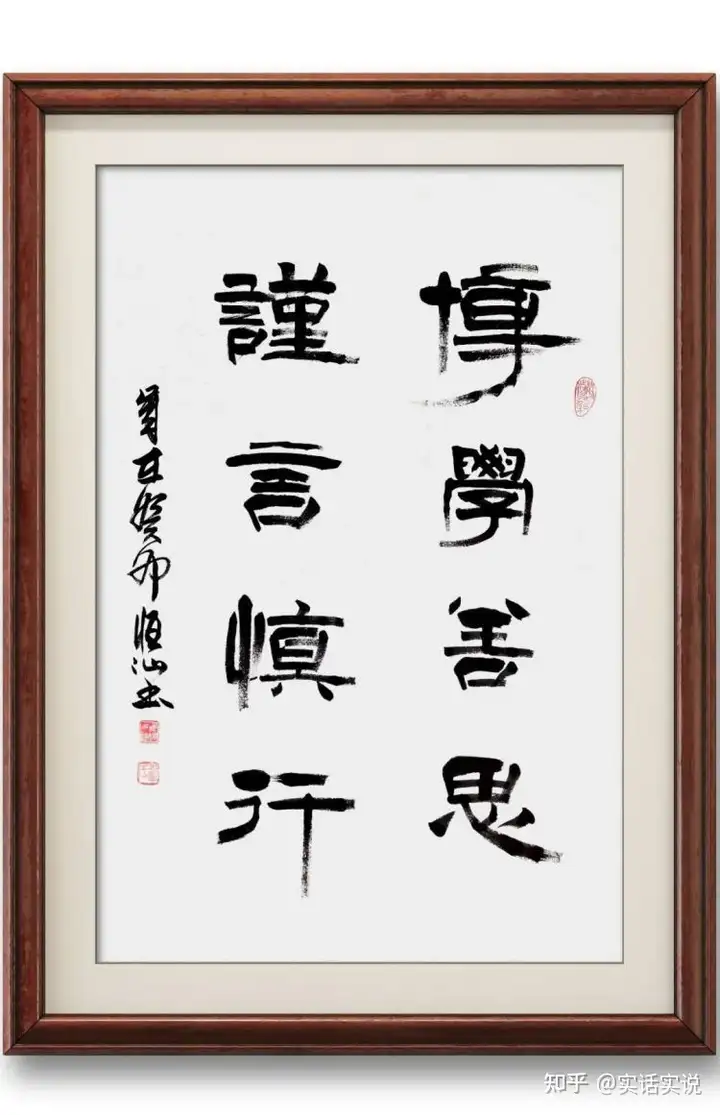 博學善思
謹言慎行
歲在癸卯 恒山書
知乎 @实话实说